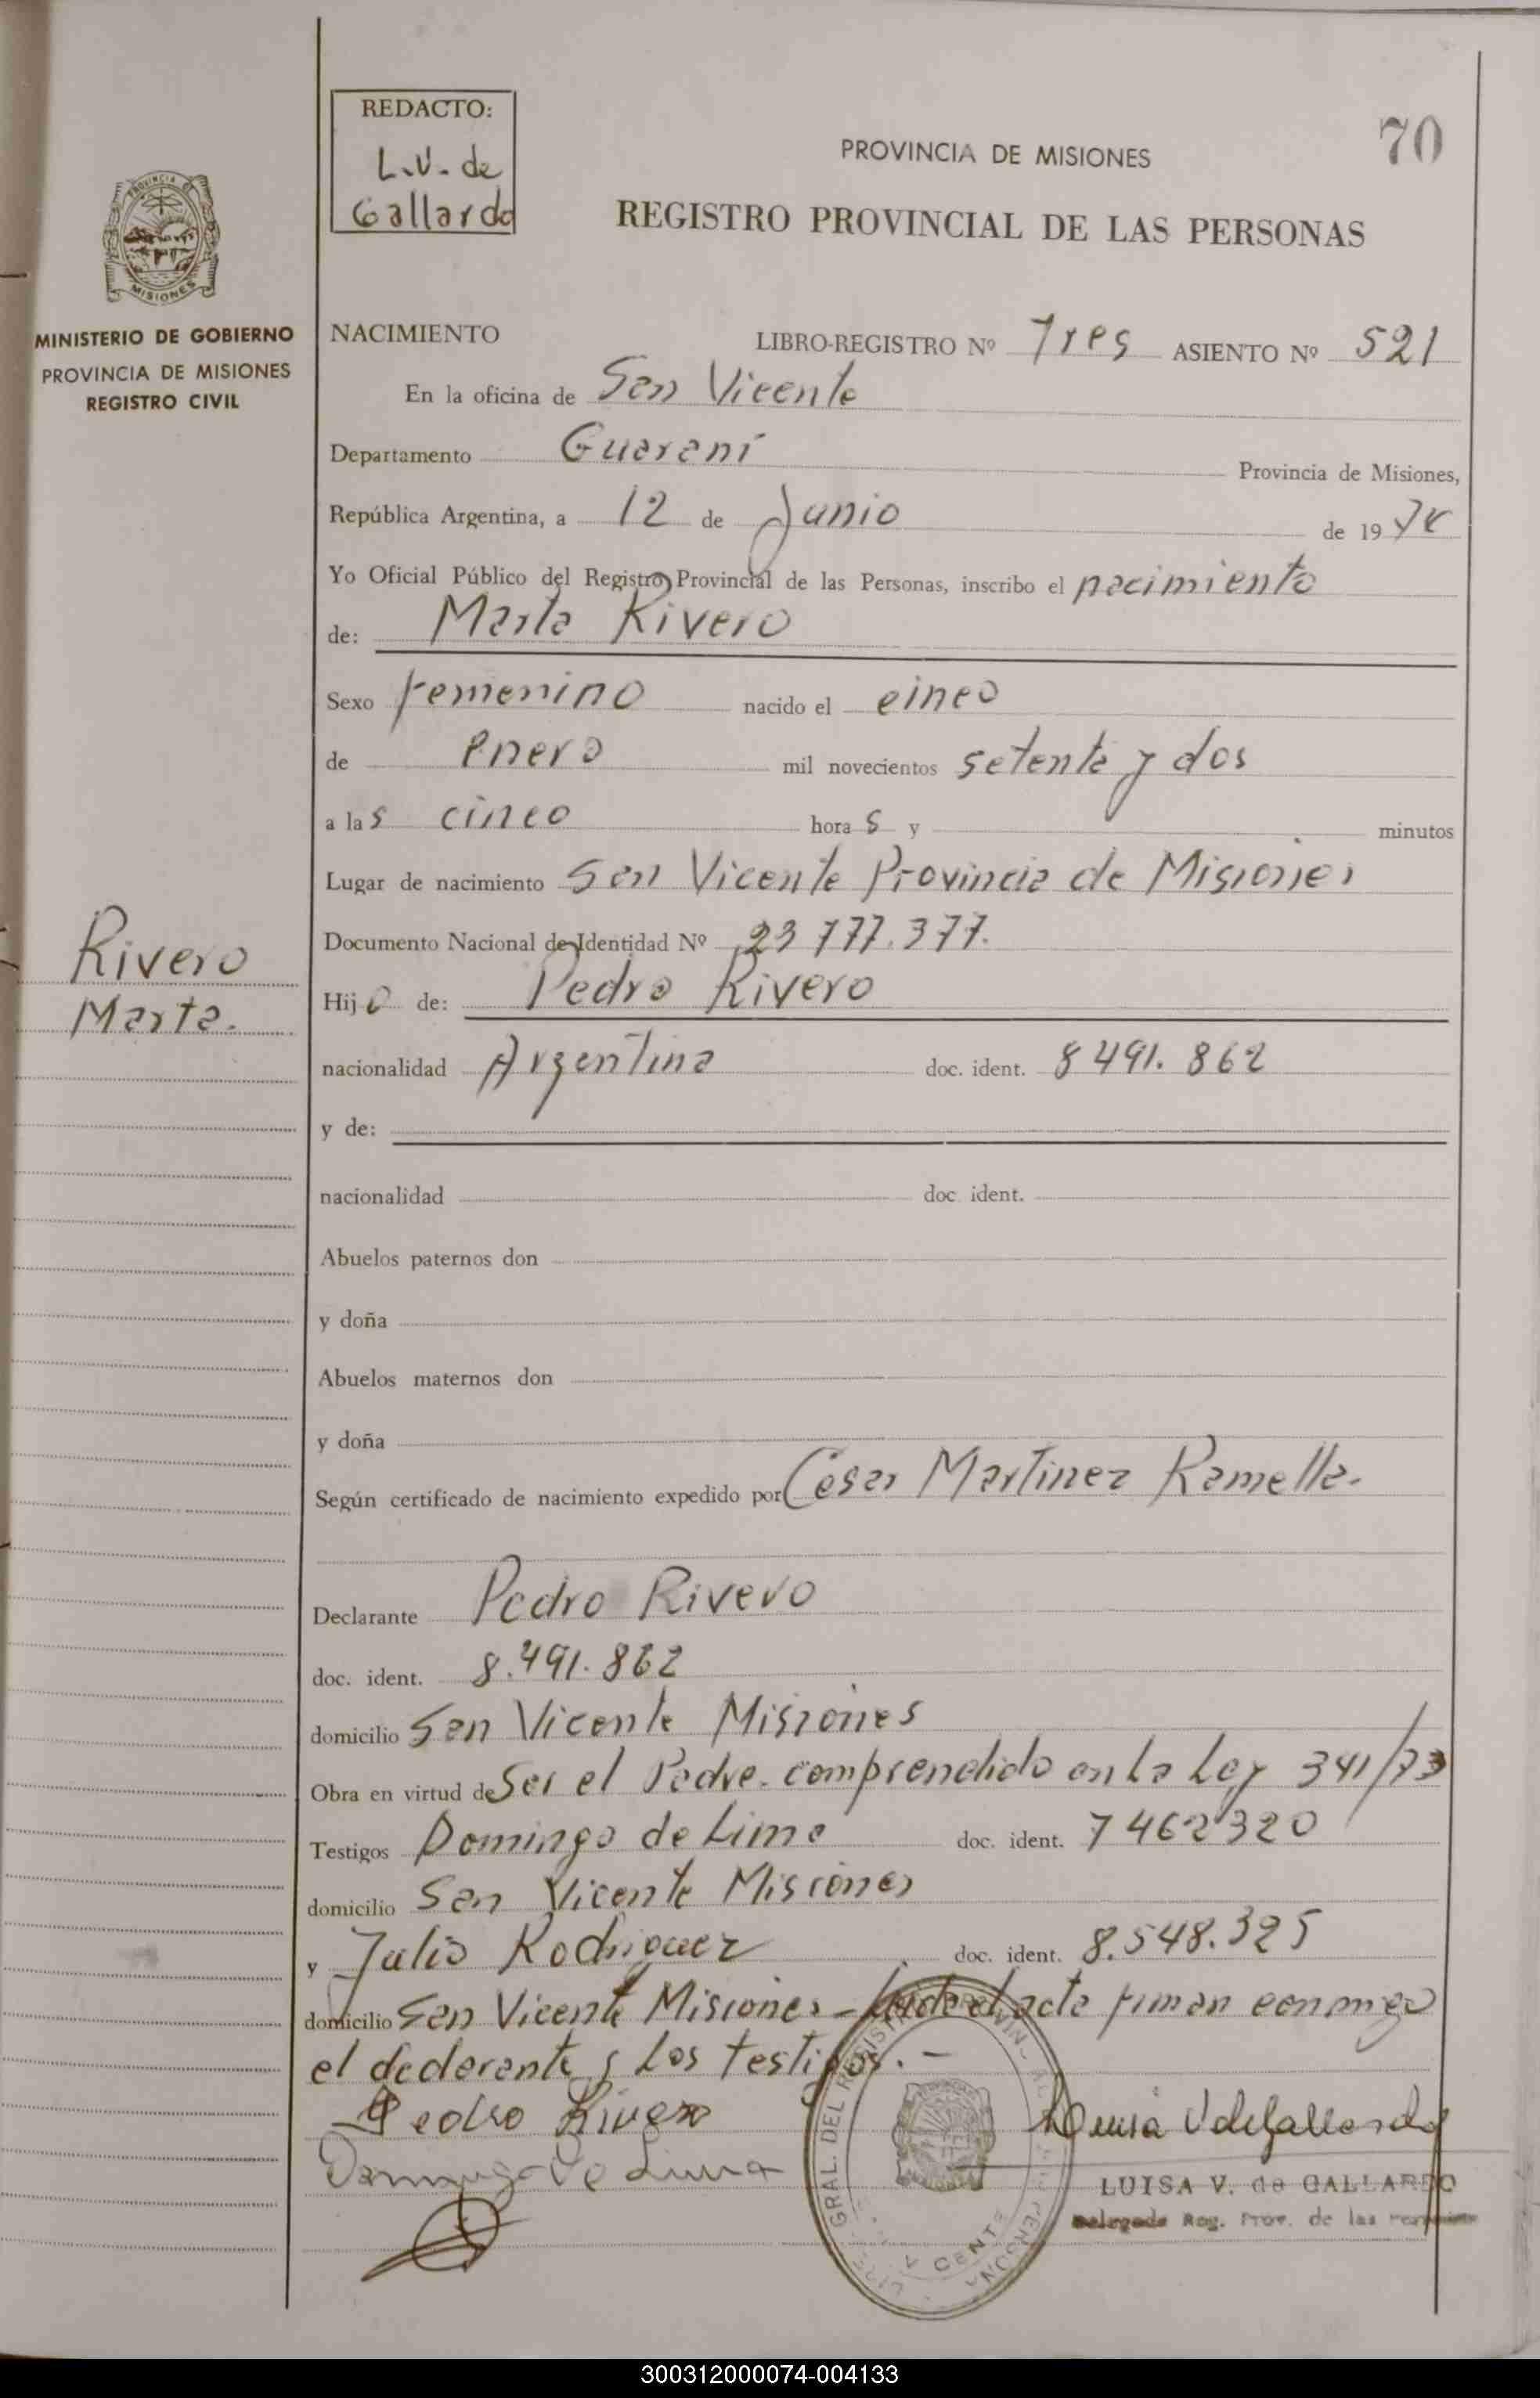 REDACTO:
L.V. de
Gallardo
PROVINCIA DE MISIONES
70
REGISTRO PROVINCIAL DE LAS PERSONAS
PROVINCIA DE
MISIONES
MINISTERIO DE GOBIERNO
PROVINCIA DE MISIONES
REGISTRO CIVIL
NACIMIENTO LIBRO-REGISTRO Nº Tres ASIENTO Nº 521
En la oficina de San Vicente
Departamento Guaraní Provincia de Misiones,
República Argentina, a 12 de Junio de 19 74
Yo Oficial Público del Registro Provincial de las Personas, inscribo el nacimiento
de: Marta Rivero
Sexo femenino nacido el cinco
de enero mil novecientos setenta y dos
a las cinco hora s y minutos
Lugar de nacimiento San Vicente Provincia de Misiones
Documento Nacional de Identidad Nº 23 777.377.
Rivero
Marta.
Hij a de: Pedro Rivero
nacionalidad Argentina doc. ident. 8 491. 862
y de:
nacionalidad doc ident.
Abuelos paternos don
y doña
Abuelos maternos don
y doña
Según certificado de nacimiento expedido por Cesar Martinez Ramella.
Declarante Pedro Rivero
doc. ident. 8.491.862
domicilio San Vicente Misiones
Obra en virtud de Ser el Padre. comprendido en La Ley 341/73
Testigos Domingo de Lima doc. ident. 7 462320
domicilio San Vicente Misiones
y Julio Rodriguez doc. ident. 8.548.325
domicilio San Vicente Misiones - Leida el acta firman conmigo
el declarante y Los testigos.-
Pedro Rivero
Domingo De Lima
Luisa V de Gallardo
GRAL. DEL REGISTRO PROVINCIAL
LUISA V. de GALLARDO
Delegada Reg. Prov. de las Personas
300312000074-004133